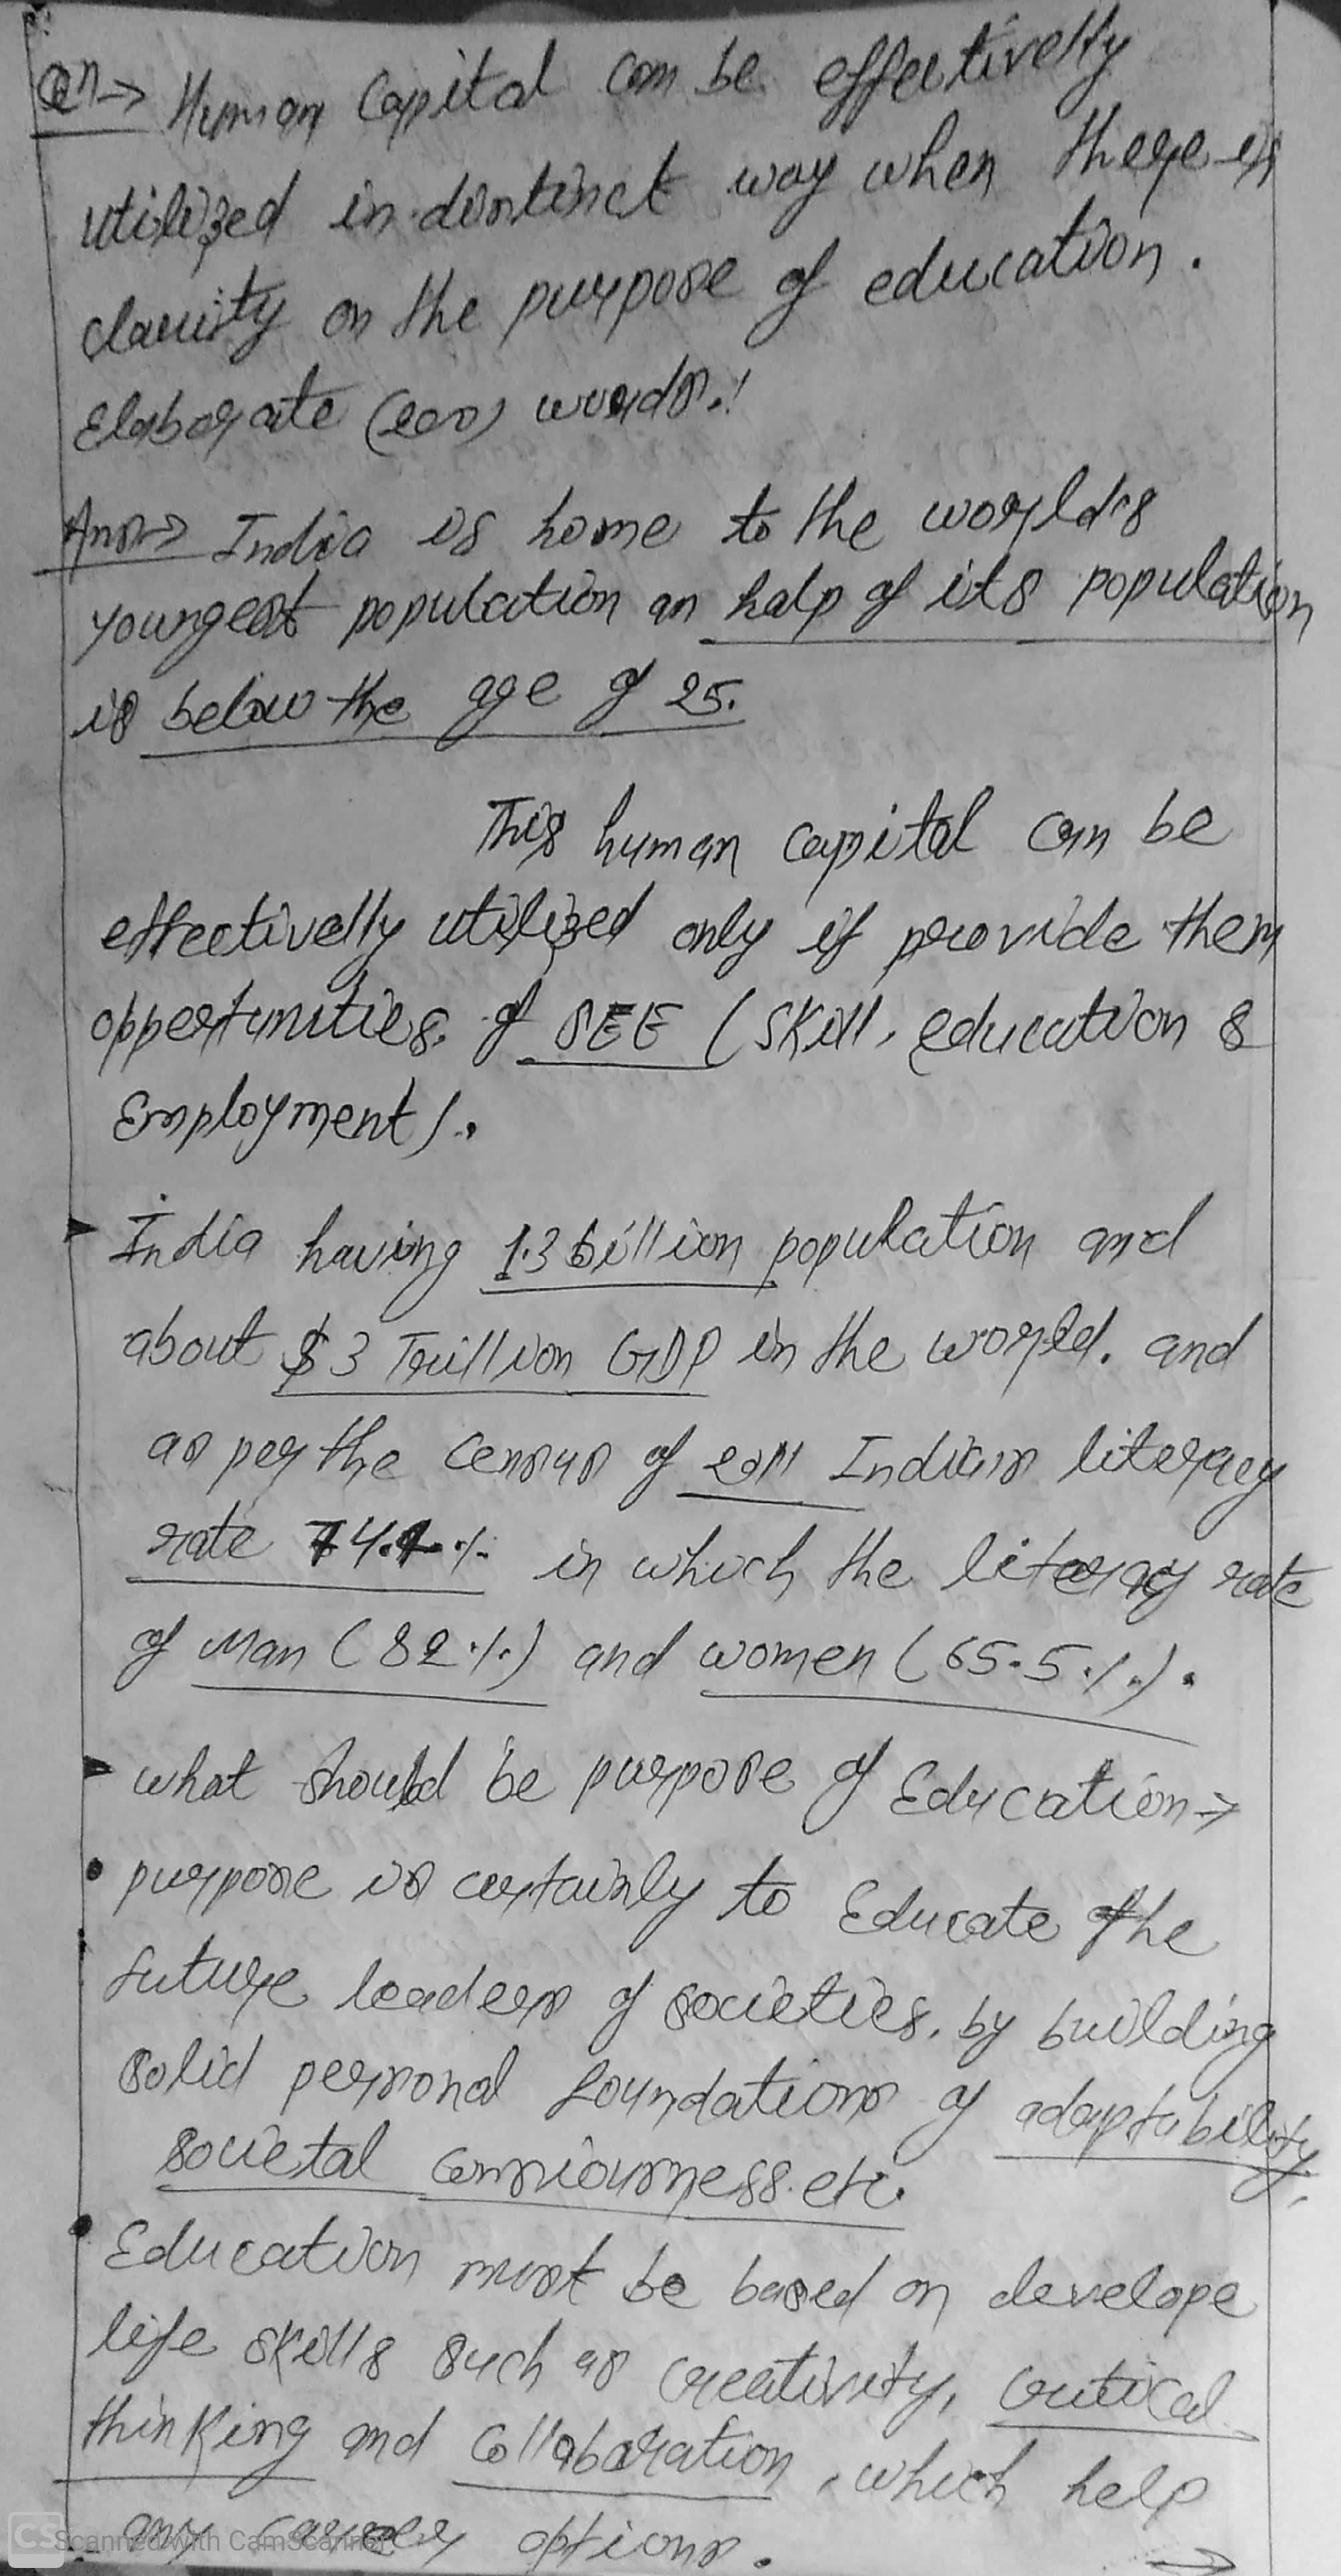 Qn→ Human Capital can be effectivelly
utilized in distinct way when there is
clarity on the purpose of education.
Elaborate (200) words.!
Ans→ India is home to the world's
youngest population as half of its population
is below the age of 25.
This human capital can be
effectivelly utilized only if provide them
oppertunities of SEE (Skill, education &
Employment).
India having 1.3 billion population and
about $3 Trillion GDP in the world. and
as per the census of 2011 Indians literacy
rate 74.1% in which the literacy rate
of Man (82%) and women (65.5%).
what should be purpose of Education→
• purpose is certainly to Educate the
future leaders of societies, by building
solid personal foundations of adaptability,
societal consiousness. etc.
• Education must be based on develope
life skills such as creativity, critical
thinking and Collaboration, which help
any career options.
→
CS Scanned with CamScanner